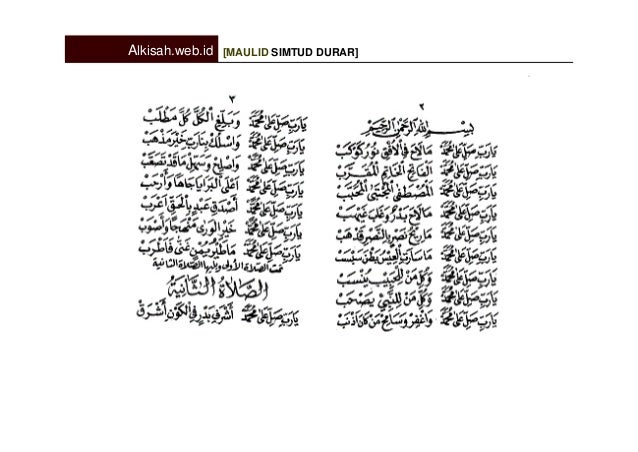 Alkisah.web.id [MAULID SIMTUD DURAR]
٢
بِسْمِ اللهِ الرَّحْمٰنِ الرَّحِيمِ
يَارَبِّ صَلِّ عَلَى مُحَمَّدْ مَا لَاحَ فِي الْأُفْقِ نُورُ كَوْكَبْ
يَارَبِّ صَلِّ عَلَى مُحَمَّدْ الْفَاتِحِ الْخَاتِمِ الْمُقَرَّبْ
يَارَبِّ صَلِّ عَلَى مُحَمَّدْ الْمُصْطَفَى الْمُجْتَبَى الْمُحَبَّبْ
يَارَبِّ صَلِّ عَلَى مُحَمَّدْ مَا لَاحَ بَدْرٌ وَغَابَ غَيْهَبْ
يَارَبِّ صَلِّ عَلَى مُحَمَّدْ مَا رِيحُ نَصْرٍ بِالنَّصْرِ قَدْ هَبْ
يَارَبِّ صَلِّ عَلَى مُحَمَّدْ مَا سَارَتِ الْعِيسُ بَطْنَ سَبْسَبْ
يَارَبِّ صَلِّ عَلَى مُحَمَّدْ وَكُلِّ مَنْ لِلْحَبِيبِ يُنْسَبْ
يَارَبِّ صَلِّ عَلَى مُحَمَّدْ وَكُلِّ مَنْ لِلنَّبِي يَصْحَبْ
يَارَبِّ صَلِّ عَلَى مُحَمَّدْ وَاغْفِرْ وَسَامِحْ مَنْ كَانَ أَذْنَبْ
٣
يَارَبِّ صَلِّ عَلَى مُحَمَّدْ وَبَلِّغِ الْكُلَّ كُلَّ مَطْلَبْ
يَارَبِّ صَلِّ عَلَى مُحَمَّدْ وَاسْلُكْ بِنَا رَبِّ خَيْرَ مَذْهَبْ
يَارَبِّ صَلِّ عَلَى مُحَمَّدْ وَاصْلِحْ وَسَهِّلْ مَا قَدْ تَصَعَّبْ
يَارَبِّ صَلِّ عَلَى مُحَمَّدْ أَعْلَى الْبَرَايَا جَاهًا وَأَرْحَبْ
يَارَبِّ صَلِّ عَلَى مُحَمَّدْ أَصْدَقِ عَبْدٍ بِالْحَقِّ أَعْرَبْ
يَارَبِّ صَلِّ عَلَى مُحَمَّدْ خَيْرِ الْوَرَى مَنْهَجًا وَأَصْوَبْ
يَارَبِّ صَلِّ عَلَى مُحَمَّدْ مَا طَيْرُ يُمْنٍ غَنَّى فَأَطْرَبْ
تمت الصلاة الأولى وتليها الصلاة الثانية
الصَّلَاةُ الثَّانِيَةُ
يَارَبِّ صَلِّ عَلَى مُحَمَّدْ أَشْرَفِ بَدْرٍ فِي الْكَوْنِ أَشْرَقْ